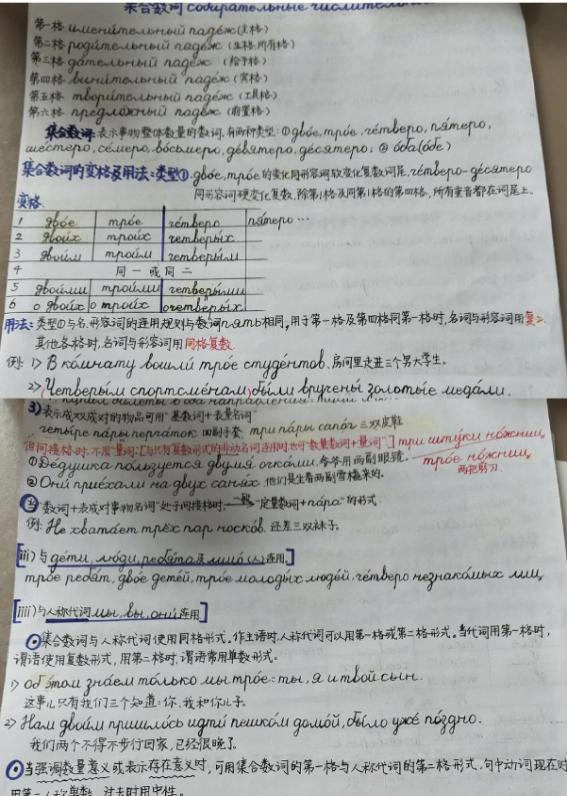 集合数词 собирательные числительные
第一格 именительный падеж (主格)
第二格 родительный падеж (生格, 所有格)
第三格 дательный падеж (给予格)
第四格 винительный падеж (宾格)
第五格 творительный падеж (工具格)
第六格 предложный падеж (前置格)
集合数词: 表示事物整体数量的数词, 有两种类型: ① двóе, трóе, чéтверо, пя́теро,
шéстеро, сéмеро, вóсьмеро, дéвятеро, дéсятеро; ② óба(óбе)
集合数词的变格及用法: 类型①. двóе, трóе 的变化同形容词软变化复数词尾, чéтверо-дéсятеро
同形容词硬变化复数, 除第1格及同第1格的第四格, 所有重音都在词尾上。
变格
1 двóе трóе чéтверо пя́теро…
2 двои́х трои́х четверы́х
3 двои́м трои́м четверы́м
4 同一或同二
5 двои́ми трои́ми четверы́ми
6 о двои́х о трои́х о четверы́х
用法: 类型①与名、形容词的连用规则与数词пять相同, 用于第一格及第四格同第一格时, 名词与形容词用复2.
其他各格时, 名词与形容词用同格复数.
例: 1> В кóмнату вошли́ трóе студéнтов. 房间里走进三个男大学生。
2> Четверы́м спортсмéнам бы́ли вручены́ золоты́е медáли.
3) 表示成双成对的物品可用“基数词+表量名词”
четы́ре пáры перчáток 四副手套 три пáры сапóг 三双皮鞋
但间接格时, 不用“量词” три шту́ки нóжниц,
① Дéдушка пóльзуется двумя́ очкáми. 爷爷用两副眼镜. трóе нóжниц
② Они́ приéхали на двух саня́х. 他们是坐着两副雪橇来的。 两把剪刀.
当“数词+表成对事物名词”处于间接格时, 一般“定量数词+пáра”的形式.
例: Не хватáет трёх пар носкóв. 还差三双袜子。
[iii) 与 дéти, лю́ди, ребя́та及лицó(人)连用.]
трóе ребя́т, двóе детéй, трóе молоды́х людéй, чéтверо незнакóмых лиц,
[iiii) 与人称代词мы, вы, они́连用]
集合数词与人称代词使用同格形式。作主语时, 人称代词可以用第一格或第二格形式。当代词用第一格时,
谓语使用复数形式, 用第二格时, 谓语常用单数形式。
1> об э́том знáем тóлько мы трóе: ты, я и твой сын.
这事儿只有我们三个知道: 你, 我和你儿子。
2> Нам двои́м пришлóсь идти́ пешкóм домóй, бы́ло ужé пóздно.
我们两个不得不步行回家, 已经很晚了。
当强调数量意义或表示存在意义时, 可用集合数词的第一格与人称代词的第二格形式, 句中动词现在时
用第三人称单数, 过去时用中性。